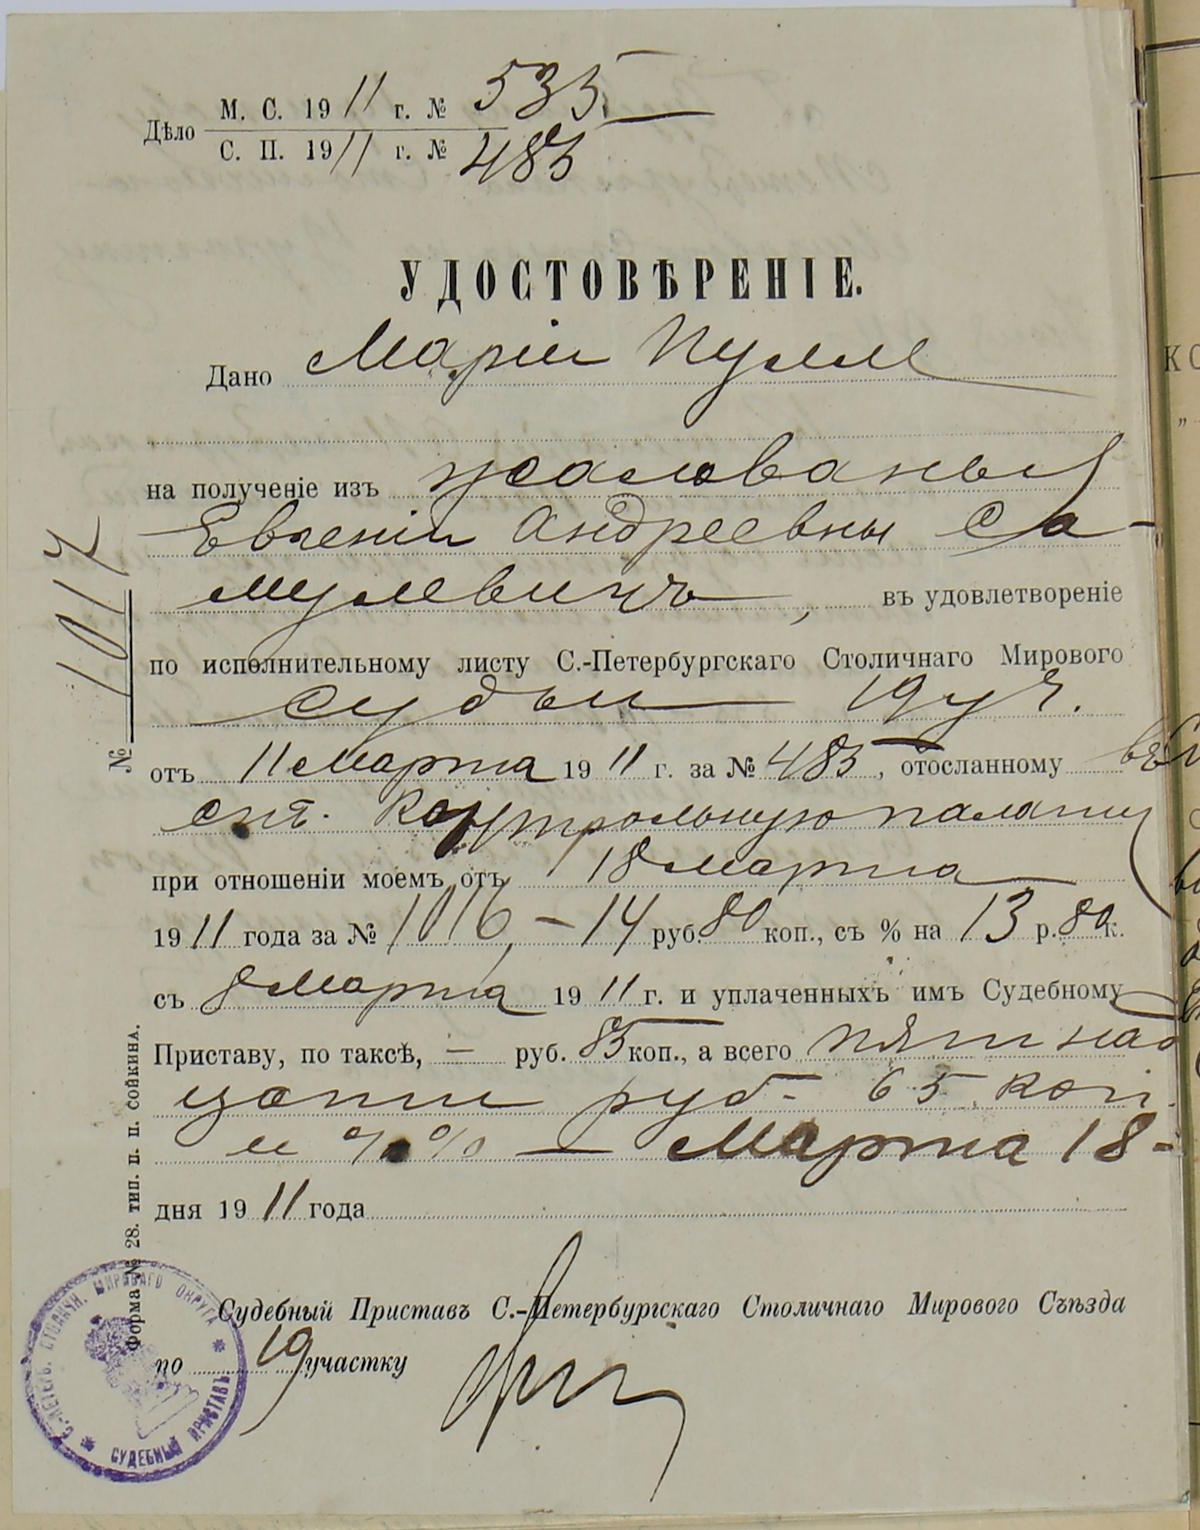 Дѣло М. С. 1911 г. № 535
С. П. 1911 г. № 485
УДОСТОВѢРЕНІЕ.
Дано Маріи Пулле
на полученіе изъ жалованья
Евгеніи Андреевны Са-
мулевичъ, въ удовлетвореніе
по исполнительному листу С.-Петербургскаго Столичнаго Мирового
Судьи 19 уч.
отъ 11 Марта 1911 г. за № 485, отосланному въ
спб. Контрольную палату
при отношеніи моемъ отъ 18 Марта
1911 года за № 1016, - 14 руб. 80 коп., съ % на 13 р. 80 к.
съ 8 Марта 1911 г. и уплаченныхъ имъ Судебному
Приставу, по таксѣ, — руб. 85 коп., а всего пятнад
цать руб. 65 коп.
и %% — Марта 18 -
дня 1911 года
Судебный Приставъ С.-Петербургскаго Столичнаго Мирового Съѣзда
по 19 участку
№ 1017
Форма № 28. тип. п. п. сойкина.
С.-ПЕТЕРБ. СТОЛИЧН. МИРОВАГО ОКРУГА
СУДЕБНЫЙ ПРИСТАВЪ